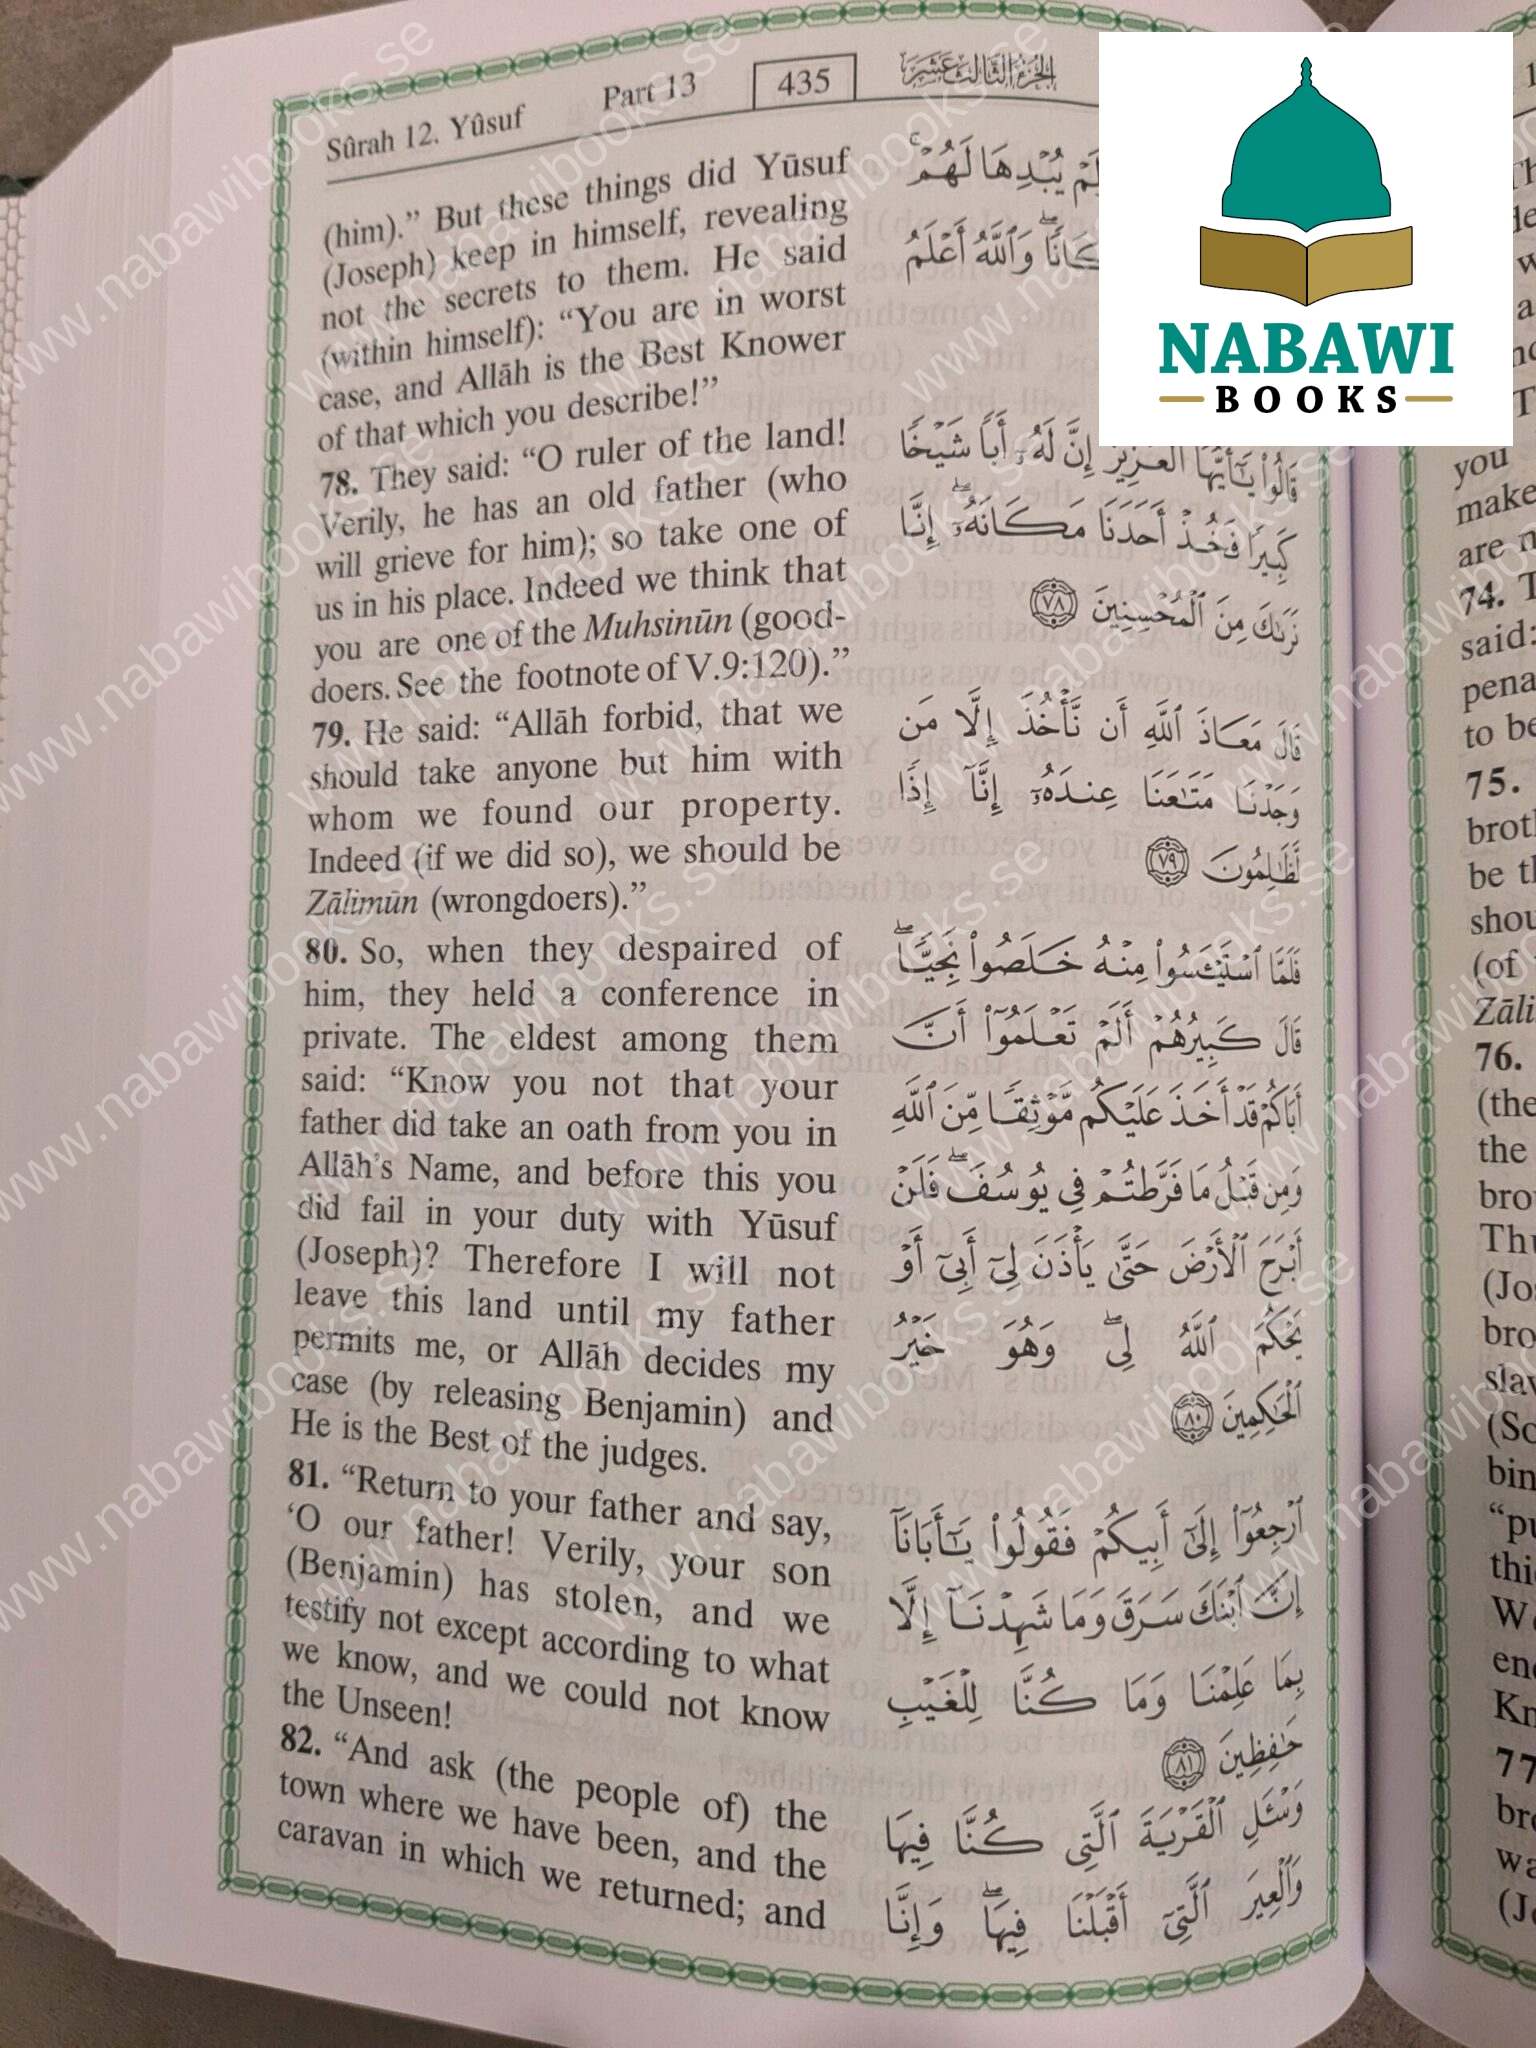 Sûrah 12. Yûsuf
Part 13
435
الجزء الثالث عشر
(him).” But these things did Yūsuf
(Joseph) keep in himself, revealing
not the secrets to them. He said
(within himself): “You are in worst
case, and Allāh is the Best Knower
of that which you describe!”
78. They said: “O ruler of the land!
Verily, he has an old father (who
will grieve for him); so take one of
us in his place. Indeed we think that
you are one of the Muhsinūn (good-
doers. See the footnote of V.9:120).”
79. He said: “Allāh forbid, that we
should take anyone but him with
whom we found our property.
Indeed (if we did so), we should be
Zālimūn (wrongdoers).”
80. So, when they despaired of
him, they held a conference in
private. The eldest among them
said: “Know you not that your
father did take an oath from you in
Allāh’s Name, and before this you
did fail in your duty with Yūsuf
(Joseph)? Therefore I will not
leave this land until my father
permits me, or Allāh decides my
case (by releasing Benjamin) and
He is the Best of the judges.
81. “Return to your father and say,
‘O our father! Verily, your son
(Benjamin) has stolen, and we
testify not except according to what
we know, and we could not know
the Unseen!
82. “And ask (the people of) the
town where we have been, and the
caravan in which we returned; and
يُبْدِهَا لَهُمْ ۚ
وَٱللَّهُ أَعْلَمُ
قَالُوا۟ يَـٰٓأَيُّهَا ٱلْعَزِيزُ إِنَّ لَهُۥٓ أَبًا شَيْخًا
كَبِيرًا فَخُذْ أَحَدَنَا مَكَانَهُۥٓ ۖ إِنَّا
نَرَىٰكَ مِنَ ٱلْمُحْسِنِينَ ٧٨
قَالَ مَعَاذَ ٱللَّهِ أَن نَّأْخُذَ إِلَّا مَن
وَجَدْنَا مَتَـٰعَنَا عِندَهُۥٓ إِنَّآ إِذًا
لَّظَـٰلِمُونَ ٧٩
فَلَمَّا ٱسْتَيْـَٔسُوا۟ مِنْهُ خَلَصُوا۟ نَجِيًّا ۖ
قَالَ كَبِيرُهُمْ أَلَمْ تَعْلَمُوٓا۟ أَنَّ
أَبَاكُمْ قَدْ أَخَذَ عَلَيْكُم مَّوْثِقًا مِّنَ ٱللَّهِ
وَمِن قَبْلُ مَا فَرَّطتُمْ فِى يُوسُفَ ۖ فَلَنْ
أَبْرَحَ ٱلْأَرْضَ حَتَّىٰ يَأْذَنَ لِىٓ أَبِىٓ أَوْ
يَحْكُمَ ٱللَّهُ لِى ۖ وَهُوَ خَيْرُ
ٱلْحَـٰكِمِينَ ٨٠
ٱرْجِعُوٓا۟ إِلَىٰٓ أَبِيكُمْ فَقُولُوا۟ يَـٰٓأَبَانَآ
إِنَّ ٱبْنَكَ سَرَقَ وَمَا شَهِدْنَآ إِلَّا
بِمَا عَلِمْنَا وَمَا كُنَّا لِلْغَيْبِ
حَـٰفِظِينَ ٨١
وَسْـَٔلِ ٱلْقَرْيَةَ ٱلَّتِى كُنَّا فِيهَا
وَٱلْعِيرَ ٱلَّتِىٓ أَقْبَلْنَا فِيهَا ۖ وَإِنَّا
NABAWI
BOOKS
you
make
are
74.
said:
to be
75.
76.
(the
the
77
www.nabawibooks.se